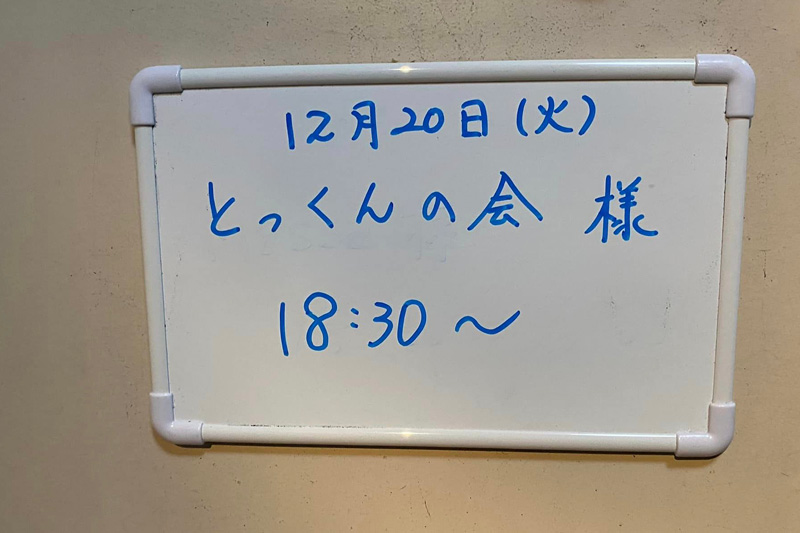 12月20日(火)
とっくんの会 様
18:30〜